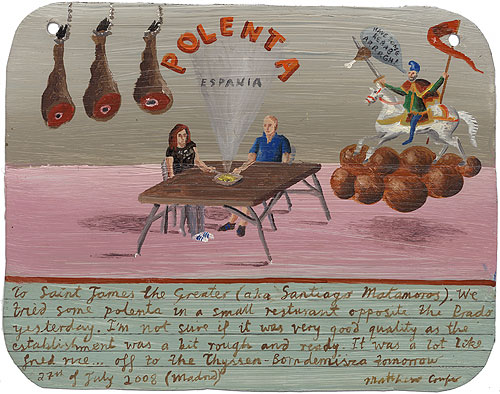 POLENTA
ESPANIA
HAVE SOME
KEBAB
To Saint James the Greater (aka Santiago Matamoros). We
tried some polenta in a small resturant opposite the Prado
yesterday. I'm not sure if it was very good quality as the
establishment was a bit rough and ready. It was a lot like
fried rice... off to the Thyssen-Borndemisza tomorrow
27th of July 2008 (Madrid)
Matthew Couper